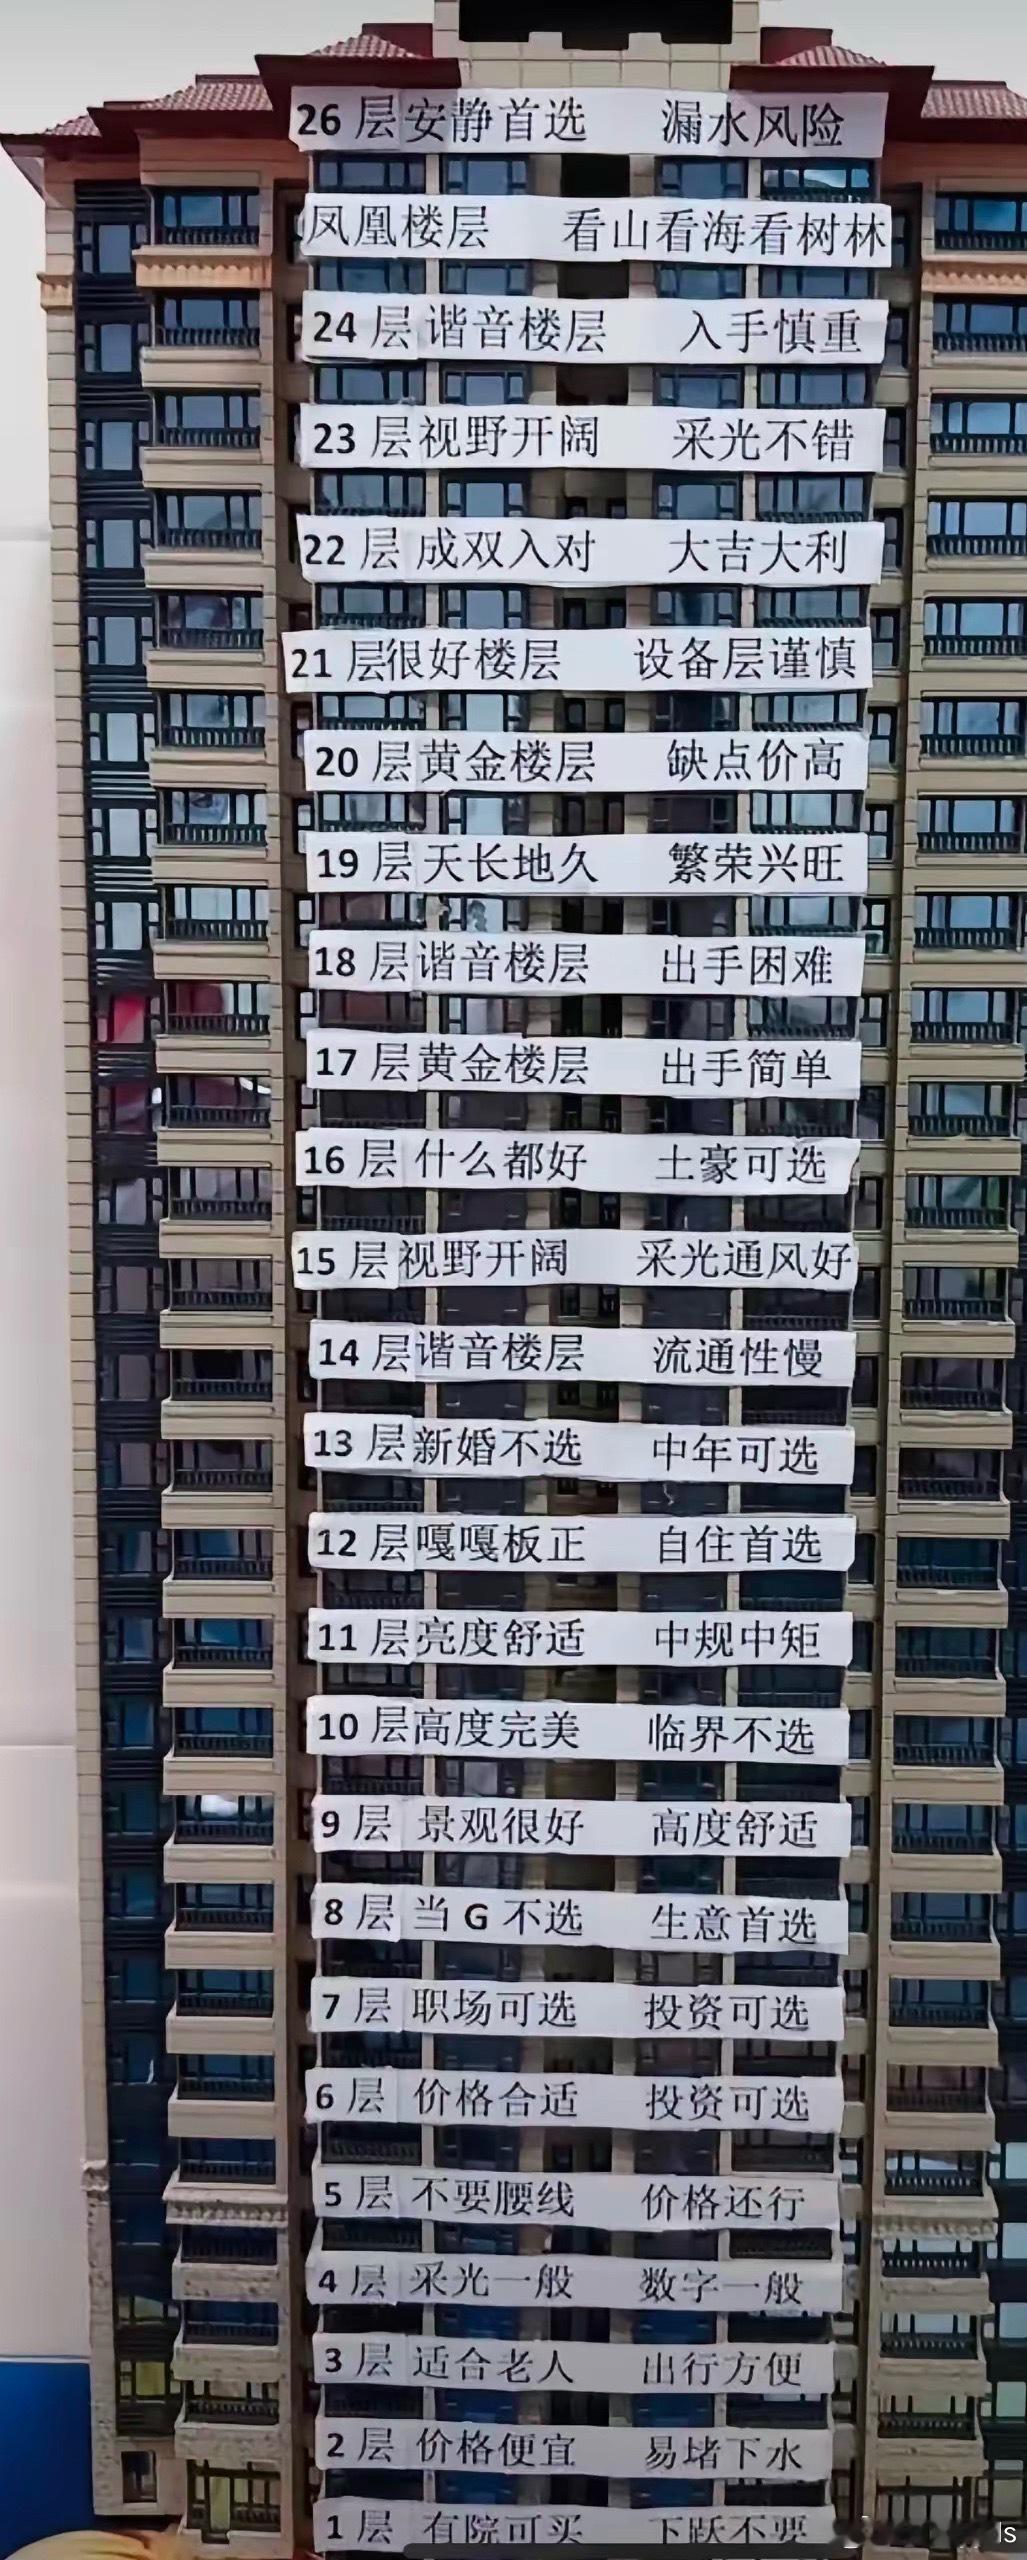 26 层 安静首选 漏水风险
凤凰楼层 看山看海看树林
24 层 谐音楼层 入手慎重
23 层 视野开阔 采光不错
22 层 成双入对 大吉大利
21 层 很好楼层 设备层谨慎
20 层 黄金楼层 缺点价高
19 层 天长地久 繁荣兴旺
18 层 谐音楼层 出手困难
17 层 黄金楼层 出手简单
16 层 什么都好 土豪可选
15 层 视野开阔 采光通风好
14 层 谐音楼层 流通性慢
13 层 新婚不选 中年可选
12 层 嘎嘎板正 自住首选
11 层 亮度舒适 中规中矩
10 层 高度完美 临界不选
9 层 景观很好 高度舒适
8 层 当 G 不选 生意首选
7 层 职场可选 投资可选
6 层 价格合适 投资可选
5 层 不要腰线 价格还行
4 层 采光一般 数字一般
3 层 适合老人 出行方便
2 层 价格便宜 易堵下水
1 层 有院可买 下跃不要